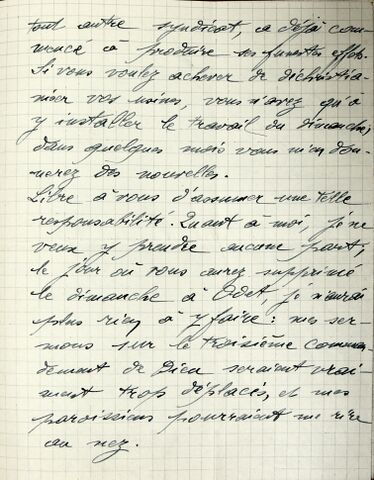 tout autre syndicat, a déjà com-
mencé à produire ses funestes effets.
Si vous voulez achever de déchristia-
niser vos usines, vous n'avez qu'à
y installer le travail du dimanche;
dans quelques mois vous m'en don-
nerez des nouvelles.
Libre à vous d'assumer une telle
responsabilité. Quant à moi, je ne
veux y prendre aucune part;
le jour où vous aurez supprimé
le dimanche à Odet, je n'aurai
plus rien à y faire: mes ser-
mons sur le troisième comman-
dement de Dieu seraient vrai-
ment trop déplacés, et mes
paroissiens pourraient me rire
au nez.